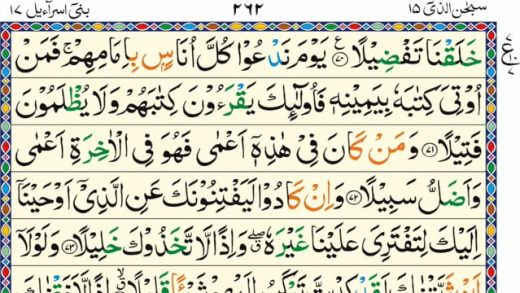 سبحٰن الذی ۱۵ ۲۶۲ بنی اسرآءیل ۱۷
خَلَقْنَا تَفْضِیْلًا ۟﴿۷۰﴾ یَوْمَ نَدْعُوْا كُلَّ اُنَاسٍۭ بِاِمَامِهِمْ ۚ فَمَنْ
اُوْتِیَ كِتٰبَهٗ بِیَمِیْنِهٖ فَاُولٰٓىِٕكَ یَقْرَءُوْنَ كِتٰبَهُمْ وَلَا یُظْلَمُوْنَ
فَتِیْلًا ﴿۷۱﴾ وَمَنْ كَانَ فِیْ هٰذِهٖۤ اَعْمٰی فَهُوَ فِی الْاٰخِرَةِ اَعْمٰی
وَاَضَلُّ سَبِیْلًا ﴿۷۲﴾ وَاِنْ كَادُوْا لَیَفْتِنُوْنَكَ عَنِ الَّذِیْۤ اَوْحَیْنَاۤ
اِلَیْكَ لِتَفْتَرِیَ عَلَیْنَا غَیْرَهٗ ۖۗ وَاِذًا لَّاتَّخَذُوْكَ خَلِیْلًا ﴿۷۳﴾ وَلَوْلَاۤ